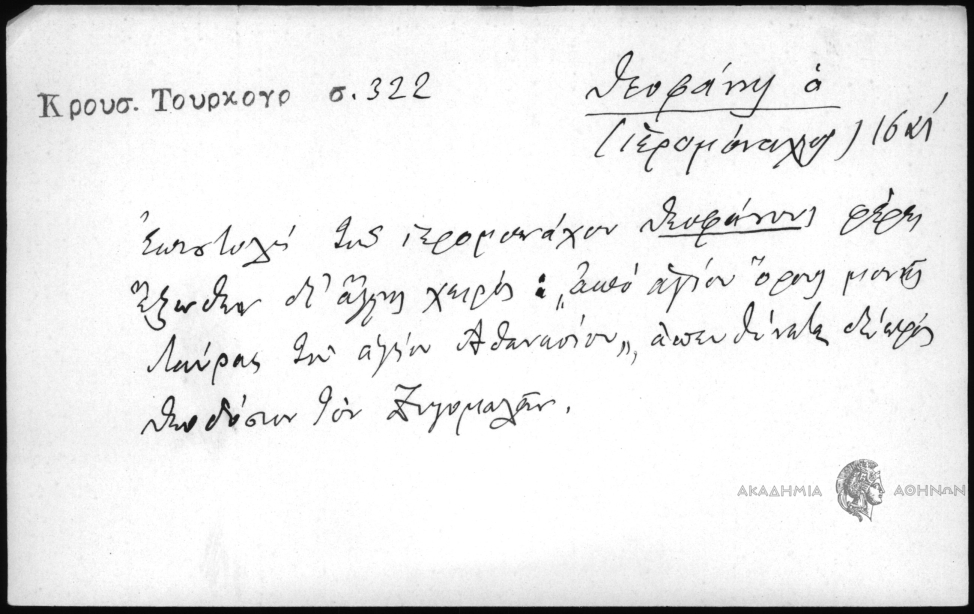 Κρουσ. Τουρκογρ σ. 322
Θεοφάνης ὁ
(ἱερομόναχος) 16 αἰ
Ἐπιστολὴ τοῦ ἱερομονάχου Θεοφάνους φέρει
ἔξωθεν δι' ἄλλης χειρός: „ἀπὸ ἁγίου ὄρους μονῆς
Λαύρας τοῦ ἁγίου Ἀθανασίου„, ἀπευθύνεται δὲ πρὸς
Θεοδόσιον τὸν Ζυγομαλᾶν.
ΑΚΑΔΗΜΙΑ ΑΘΗΝΩΝ